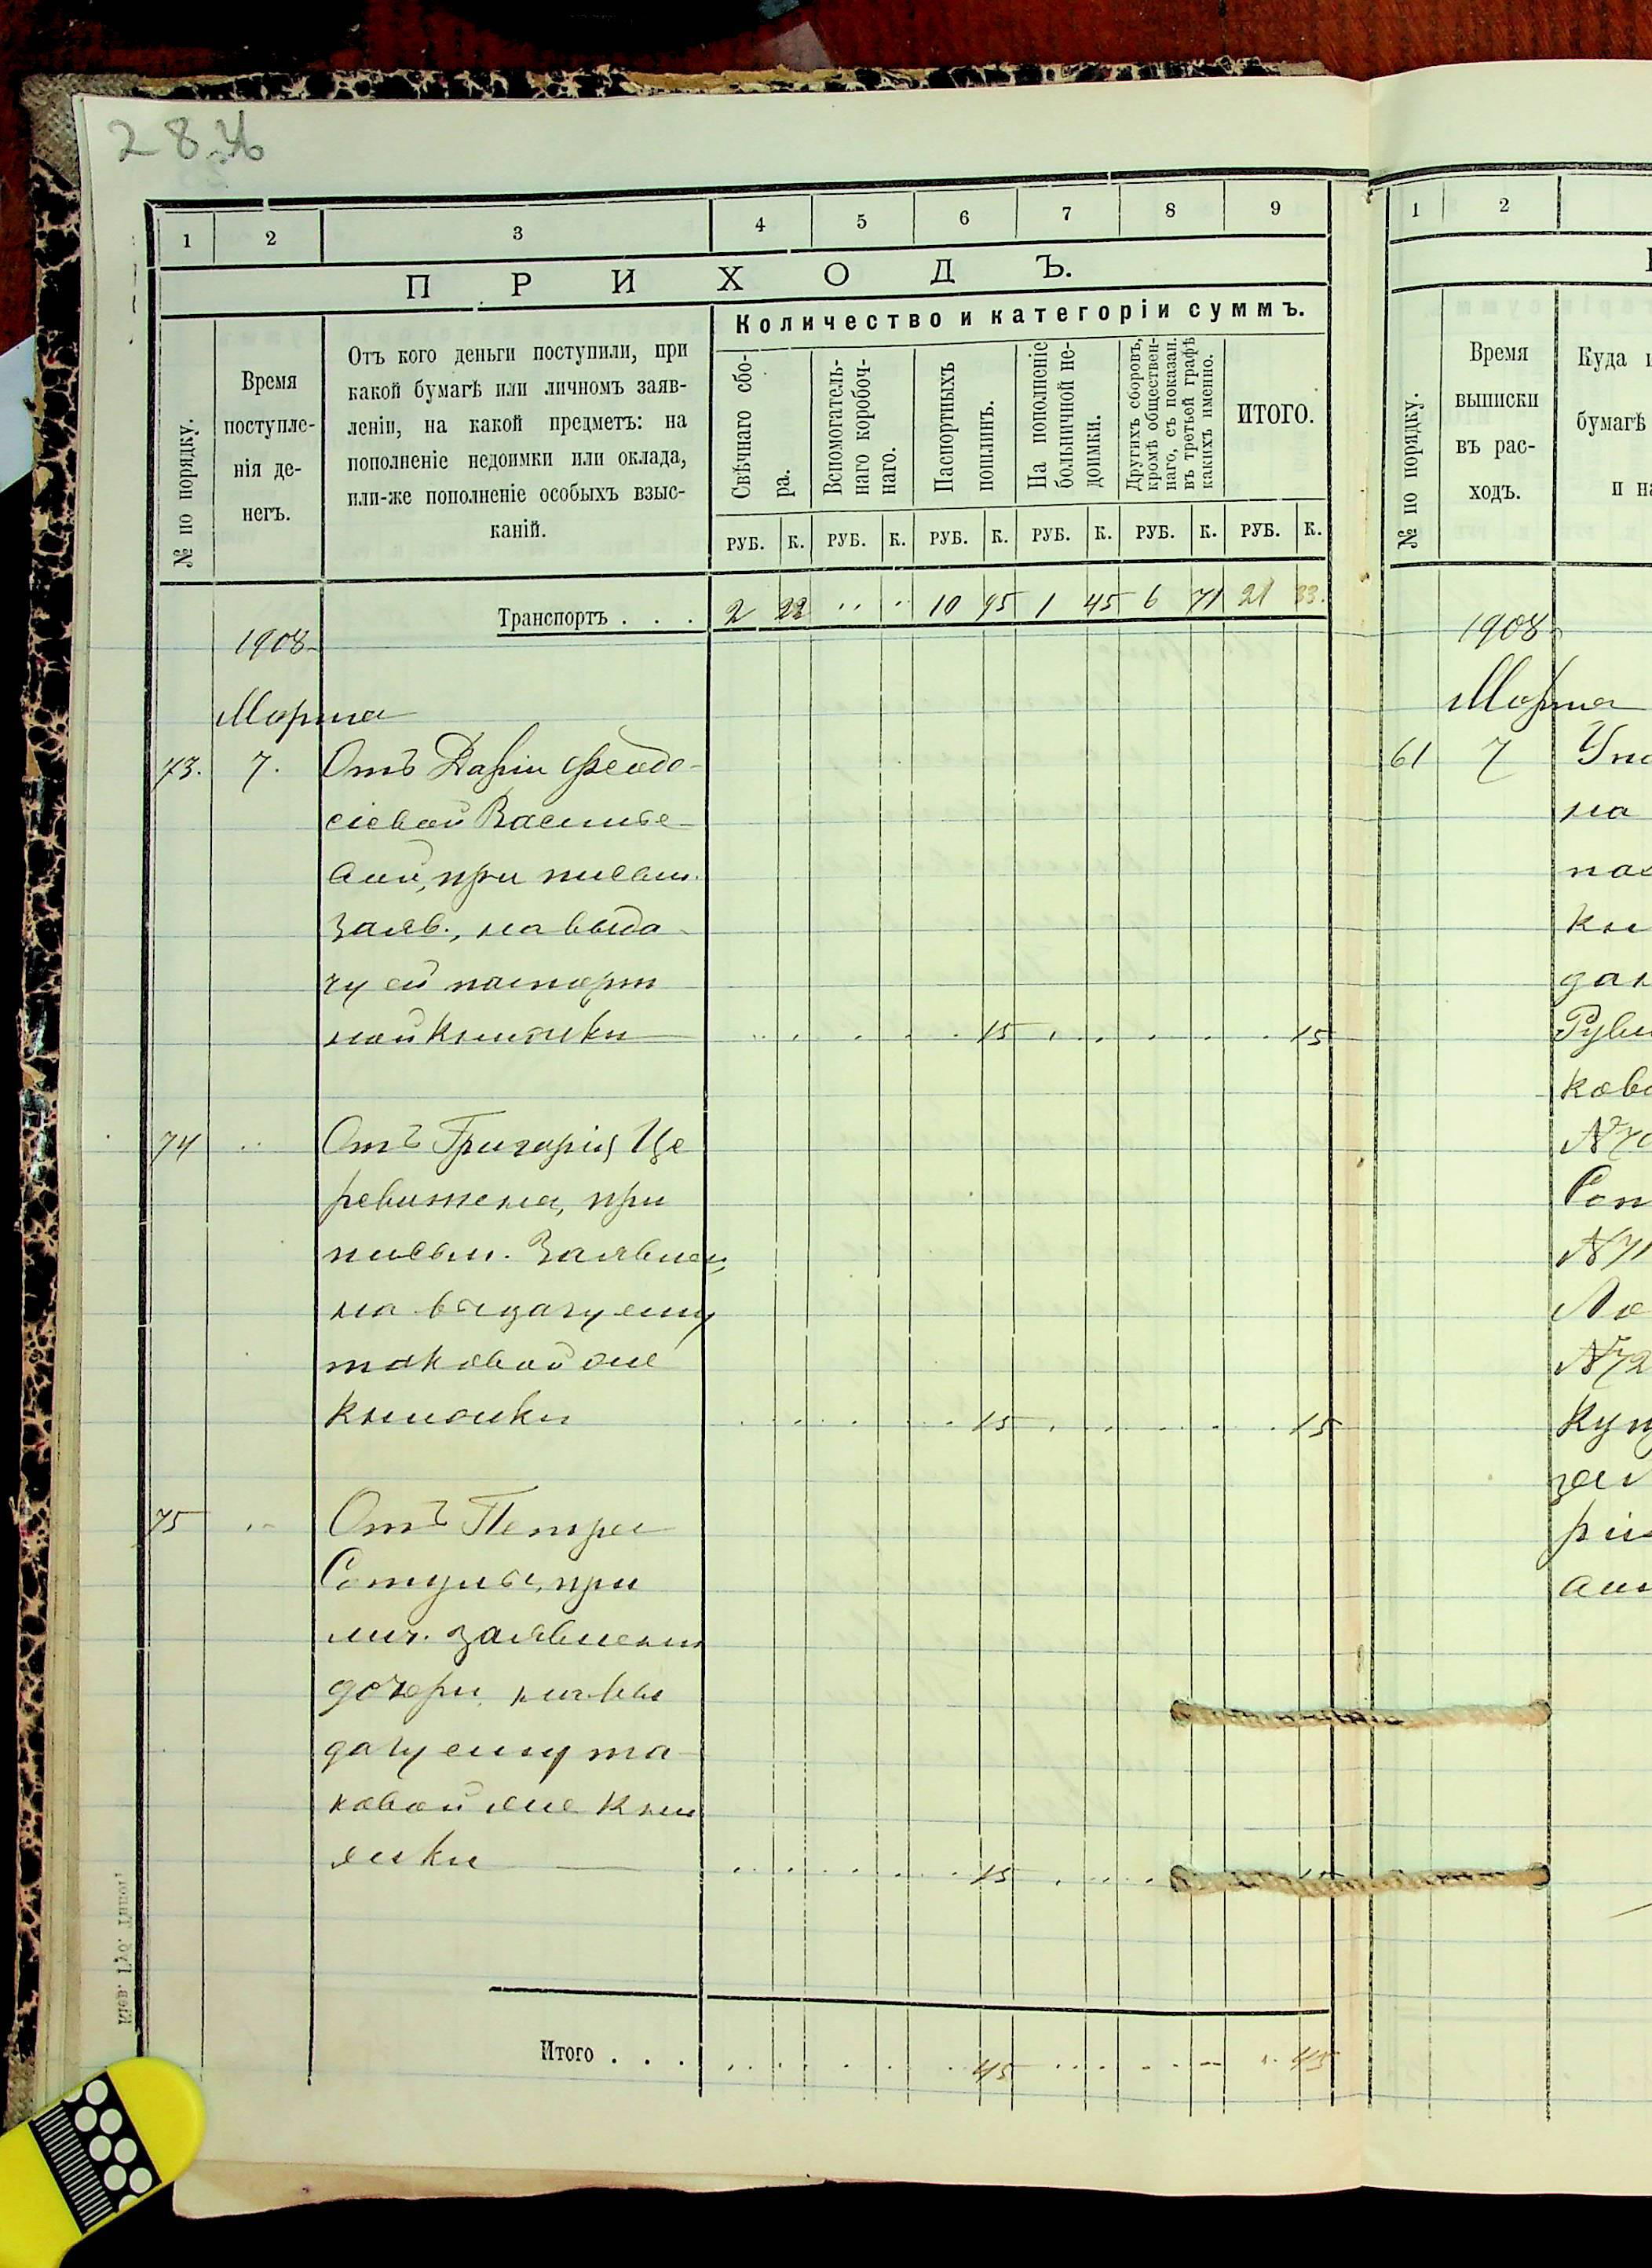 1 2 3 4 5 6 7 8 9
П Р И Х О Д Ъ.
№ по порядку.
Время
поступле-
нія де-
негъ.
Отъ кого деньги поступили, при
какой бумагѣ или личномъ заяв-
леніи, на какой предметъ: на
пополненіе недоимки или оклада,
или-же пополненіе особыхъ взыс-
каній.
Количество и категоріи суммъ.
Свѣчнаго сбо-
ра.
Вспомогатель-
наго коробоч-
наго.
Паспортныхъ
пошлинъ.
На пополненіе
больничной не-
доимки.
Другихъ сборовъ,
кромѣ обществен-
наго, съ показан.
въ третьей графѣ
какихъ именно.
ИТОГО.
РУБ. К. РУБ. К. РУБ. К. РУБ. К. РУБ. К. РУБ. К.
Транспортъ . . . 2 10 95 1 45 6 71 21 33.
1908
Марта
73. 7. Отъ Даріи Феодо-
сіевой Василье-
вой, при писам.
заяв., на выда-
чу ей паспорт
ной книжки 15 15
74 Отъ Григорія Це
ревитена, при
письм. Заявлен,
на выдачу ему
таковой же
книжки 15 15
75 Отъ Петра
при
лич. заявленіи
дочери, на вы
дачу ему та-
ковой же кни
жки 15 15
Итого . . . 45 45
1 2
№ по порядку.
Время
выписки
въ рас-
ходъ.
Куда
бумагѣ
и на
1908
Марта
61 7
на
кы
дан
ково
N 71
N 72